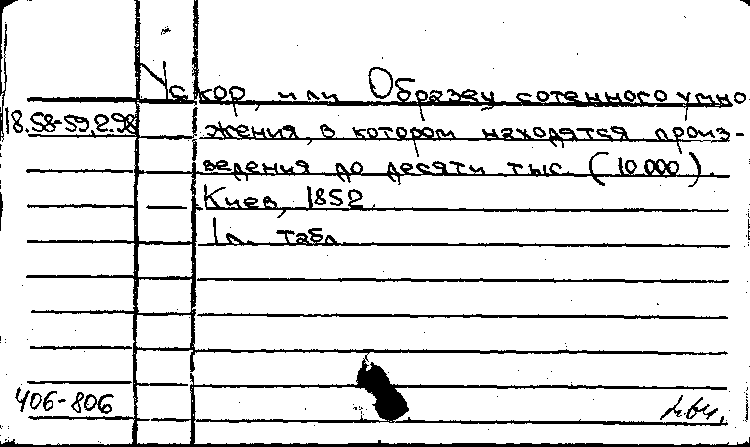 Ускор, или Образец сотенного умно
18.58-59.2.98
жения, в котором находятся произ-
ведения до десяти тыс. (10.000).
Киев, 1852.
1 л. табл.
406-806